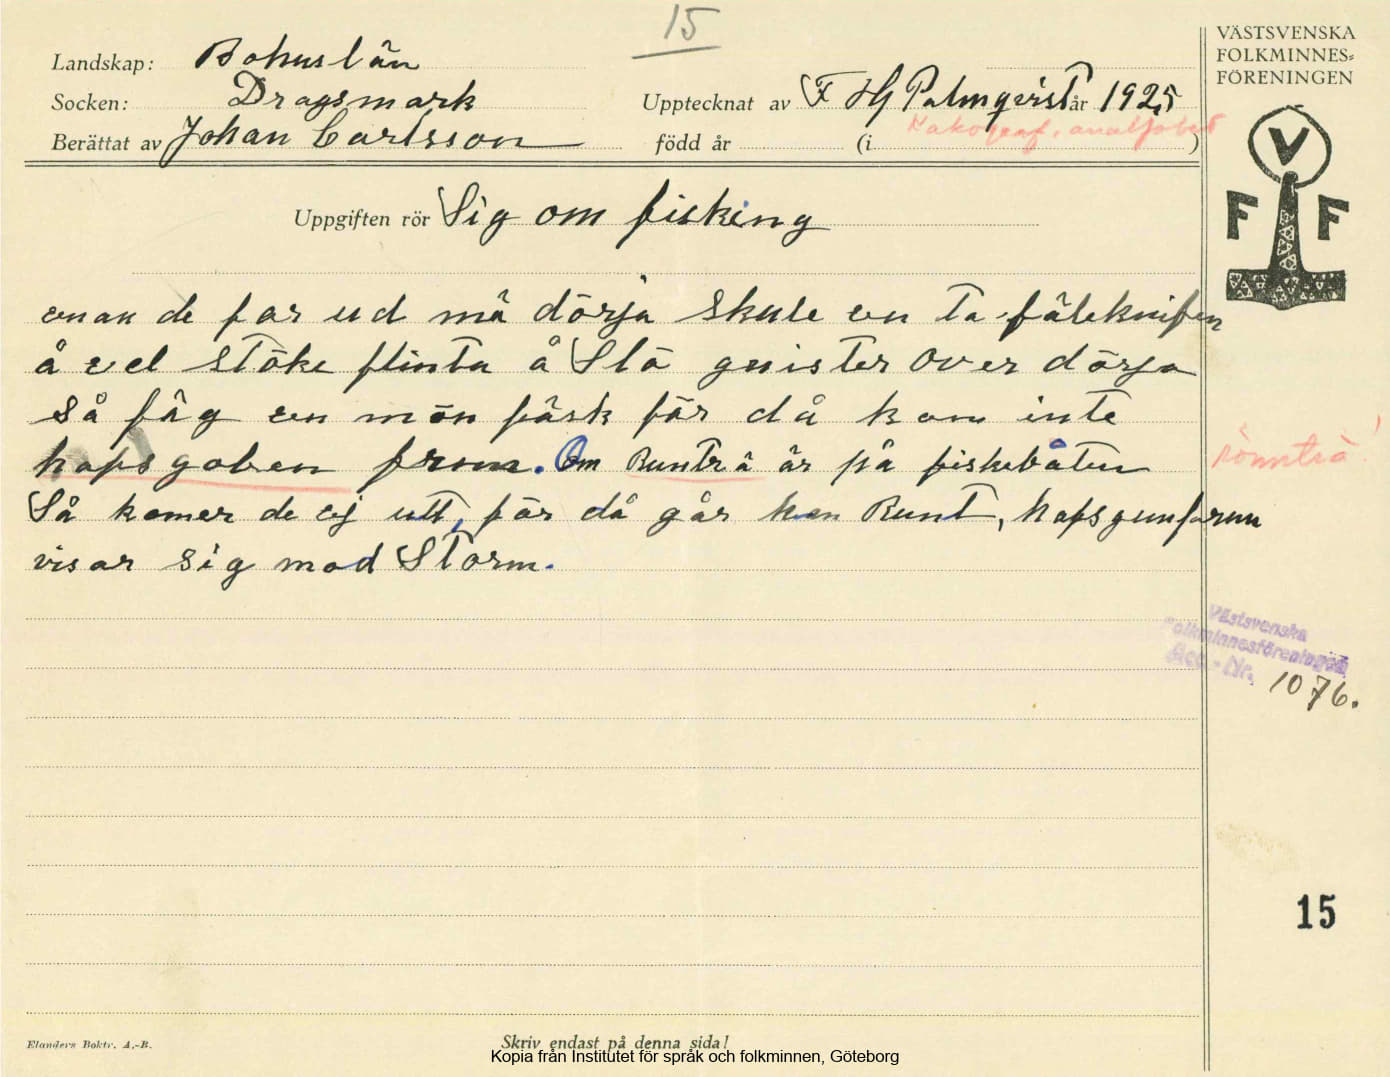 15
VÄSTSVENSKA
FOLKMINNES=
FÖRENINGEN
Landskap: Bohuslän
Socken: Dragsmark
Upptecknat av F HG Palmqvist år 1925
Berättat av Johan Carlsson
född år (i )
V
F F
Uppgiften rör Sig om fiskeing
enan de far ud må dörja skule en ta fäleknifen
å eel stöke flinta å Slå gnister over dörja
så fåg en mön fäsk för då kom inte
hafsgoben from. Om Runträ är på fiskebåten
Så komer de ej utt, för då går han Runt, hafsgumforum
visar sig mod Storm.
Rönnträ!
Västsvenska
Folkminnesföreningen
Acc.-Nr. 1076.
15
Elanders Boktr. A.-B.
Skriv endast på denna sida!
Kopia från Institutet för språk och folkminnen, Göteborg